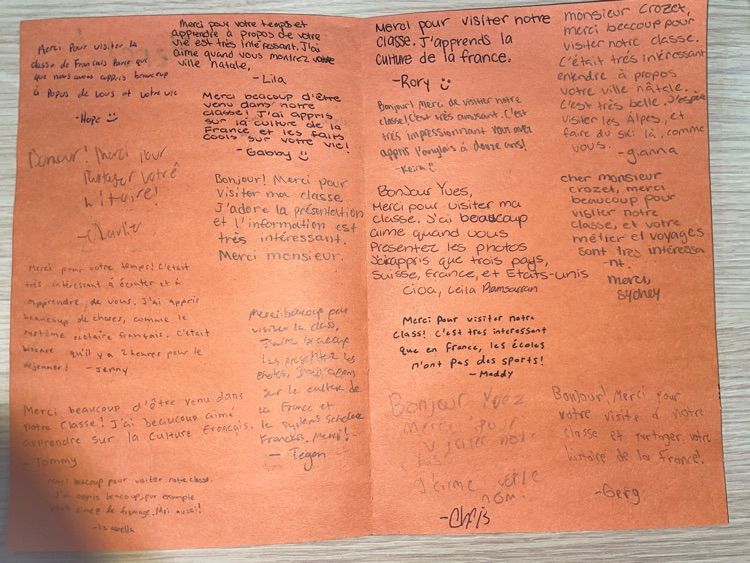 Merci Pour visiter la
classe de Francais Parce que
que nous avons appris beaucoup
à Propos de vous et votre vie
-Hope
Merci pour votre temps et
apprendre à propos de votre
vie est très intéressant. J'ai
aime quand vous montrez votre
ville natale.
-Lila
Merci beaucoup d'être
venu dans notre
classe! J'ai appris
sur la culture de la
France et les faits
cools sur votre vie!
-Gabby
Bonsour! Merci pour
Partager votrê
hitoire!
-Charlie
Bonjour! Merci pour
visiter ma classe.
J'adore la présentation
et l'information est
très intéressant.
Merci monsieur.
Merci pour votre temps! C'était
très intéressant à écouter et à
apprendre, de vous. J'ai appris
beaucoup de choses, comme le
système scolaire français. C'était
bizarre qu'il y a 2 heures pour le
déjeuner! -Jenny
merci beaucoup pour
visiter la class,
J'aime beaucoup
les presenter les
photos,
sur le culture de
la France et
le systems scholare
Francais, Merci!
- Tegan
Merci beaucoup d'être venu dans
notre classe! J'ai beaucoup aimé
apprendre sur la culture français.
- Tommy
Merci beacoup pour visiter notre classe.
J'ai appris beacoup, par example
vous aimez le fromage. Moi aussi!
-Isabella
Merci pour visiter notre
classe. J'apprends la
culture de la france.
-Rory
Bonjour! Merci de visiter notre
classe! C'est très amusant. C'est
très impressionnant vous avez
appris l'anglais à douze ans!
-Keira
Bonjour Yves,
Merci pour visiter ma
classe. J'ai beaucoup
aime quand vous
Presentez les photos
J'ai appris que trois pays,
Suisse, France, et Etats-unis
Cioa, Leila Ramsarran
Merci pour visiter notre
class! C'est tres interessant
que en France, les écoles
n'ont pas des sports!
- Maddy
Bonjour Yvez
Merci pour
visiter notre
J'aime votre
nom!
-Chris
monsieur Crozet,
merci beaccoup pour
visiter notre classe.
C'était très intéressant
entendre à propos
votre ville nâtale.
C'est très belle. J'espère
visiter les Alpes, et
faire du ski là, comme
vous. -gianna
cher monsieur
crozet, merci
beaucoup pour
visiter notre
classe, et votre
métier et voyages
sont tres interessa
-nt.
merci,
sydney
Bonjour! Merci pour
votre visite à notre
classe et partager votre
histoire de la France!
-Gerg